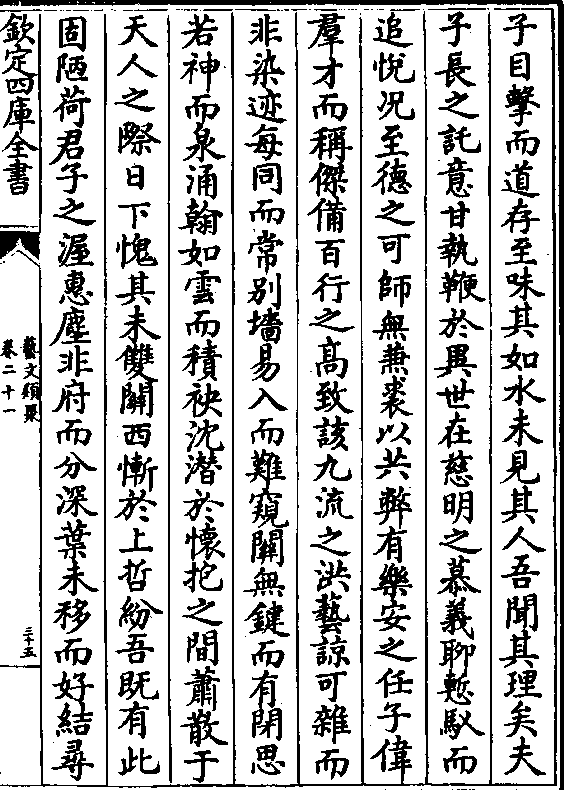 子目擊而道存至味其如水未見其人吾聞其理矣夫
子長之託意甘執鞭於異世在慈明之慕義聊慙馭而
追悅况至德之可師無兼裘以共弊有樂安之任子偉
羣才而稱傑備百行之高致該九流之洪藝諒可雜而
非染迹每同而常别墻易入而難窺關無鍵而有閉思
若神而泉涌翰如雲而積袂沈潜於懷抱之間蕭散于
天人之際日下愧其未雙關西慚於上哲紛吾既有此
固陋荷君子之渥惠塵非府而分深葉未移而好結尋
欽定四庫全書
藝文類聚
卷二十一
三十五